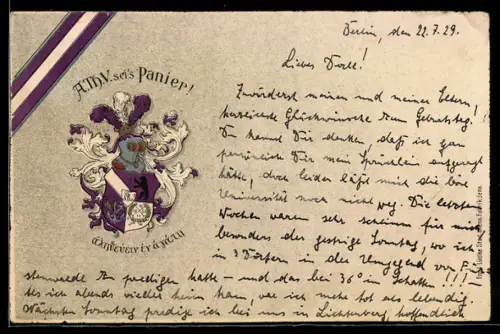 A.Th.V. sei's Panier!
ἀληθεύειν ἐν ἀγάπῃ
Berlin, den 22.7.29.
Liebes Doll!
Zuvörderst meinen und meiner Eltern
herzlichste Glückwünsche zum Geburtstag.
Du kannst Dir denken, daß ich gar
persönlich Dir mein Sprüchlein aufgesagt
hätte, doch leider läßt mich die böse
Universität noch nicht weg. Die letzten
Wochen waren sehr schön für mich
besonders der gestrige Sonntag, wo ich
in 3 Dörfern in der Umgegend von
stenwalde zu predigen hatte – und das bei 36° im Schatten!!!
Als ich abends wieder heim kam, war ich mehr tot als lebendig.
Nächsten Sonntag predige ich bei uns in Lichtenberg, hoffentlich